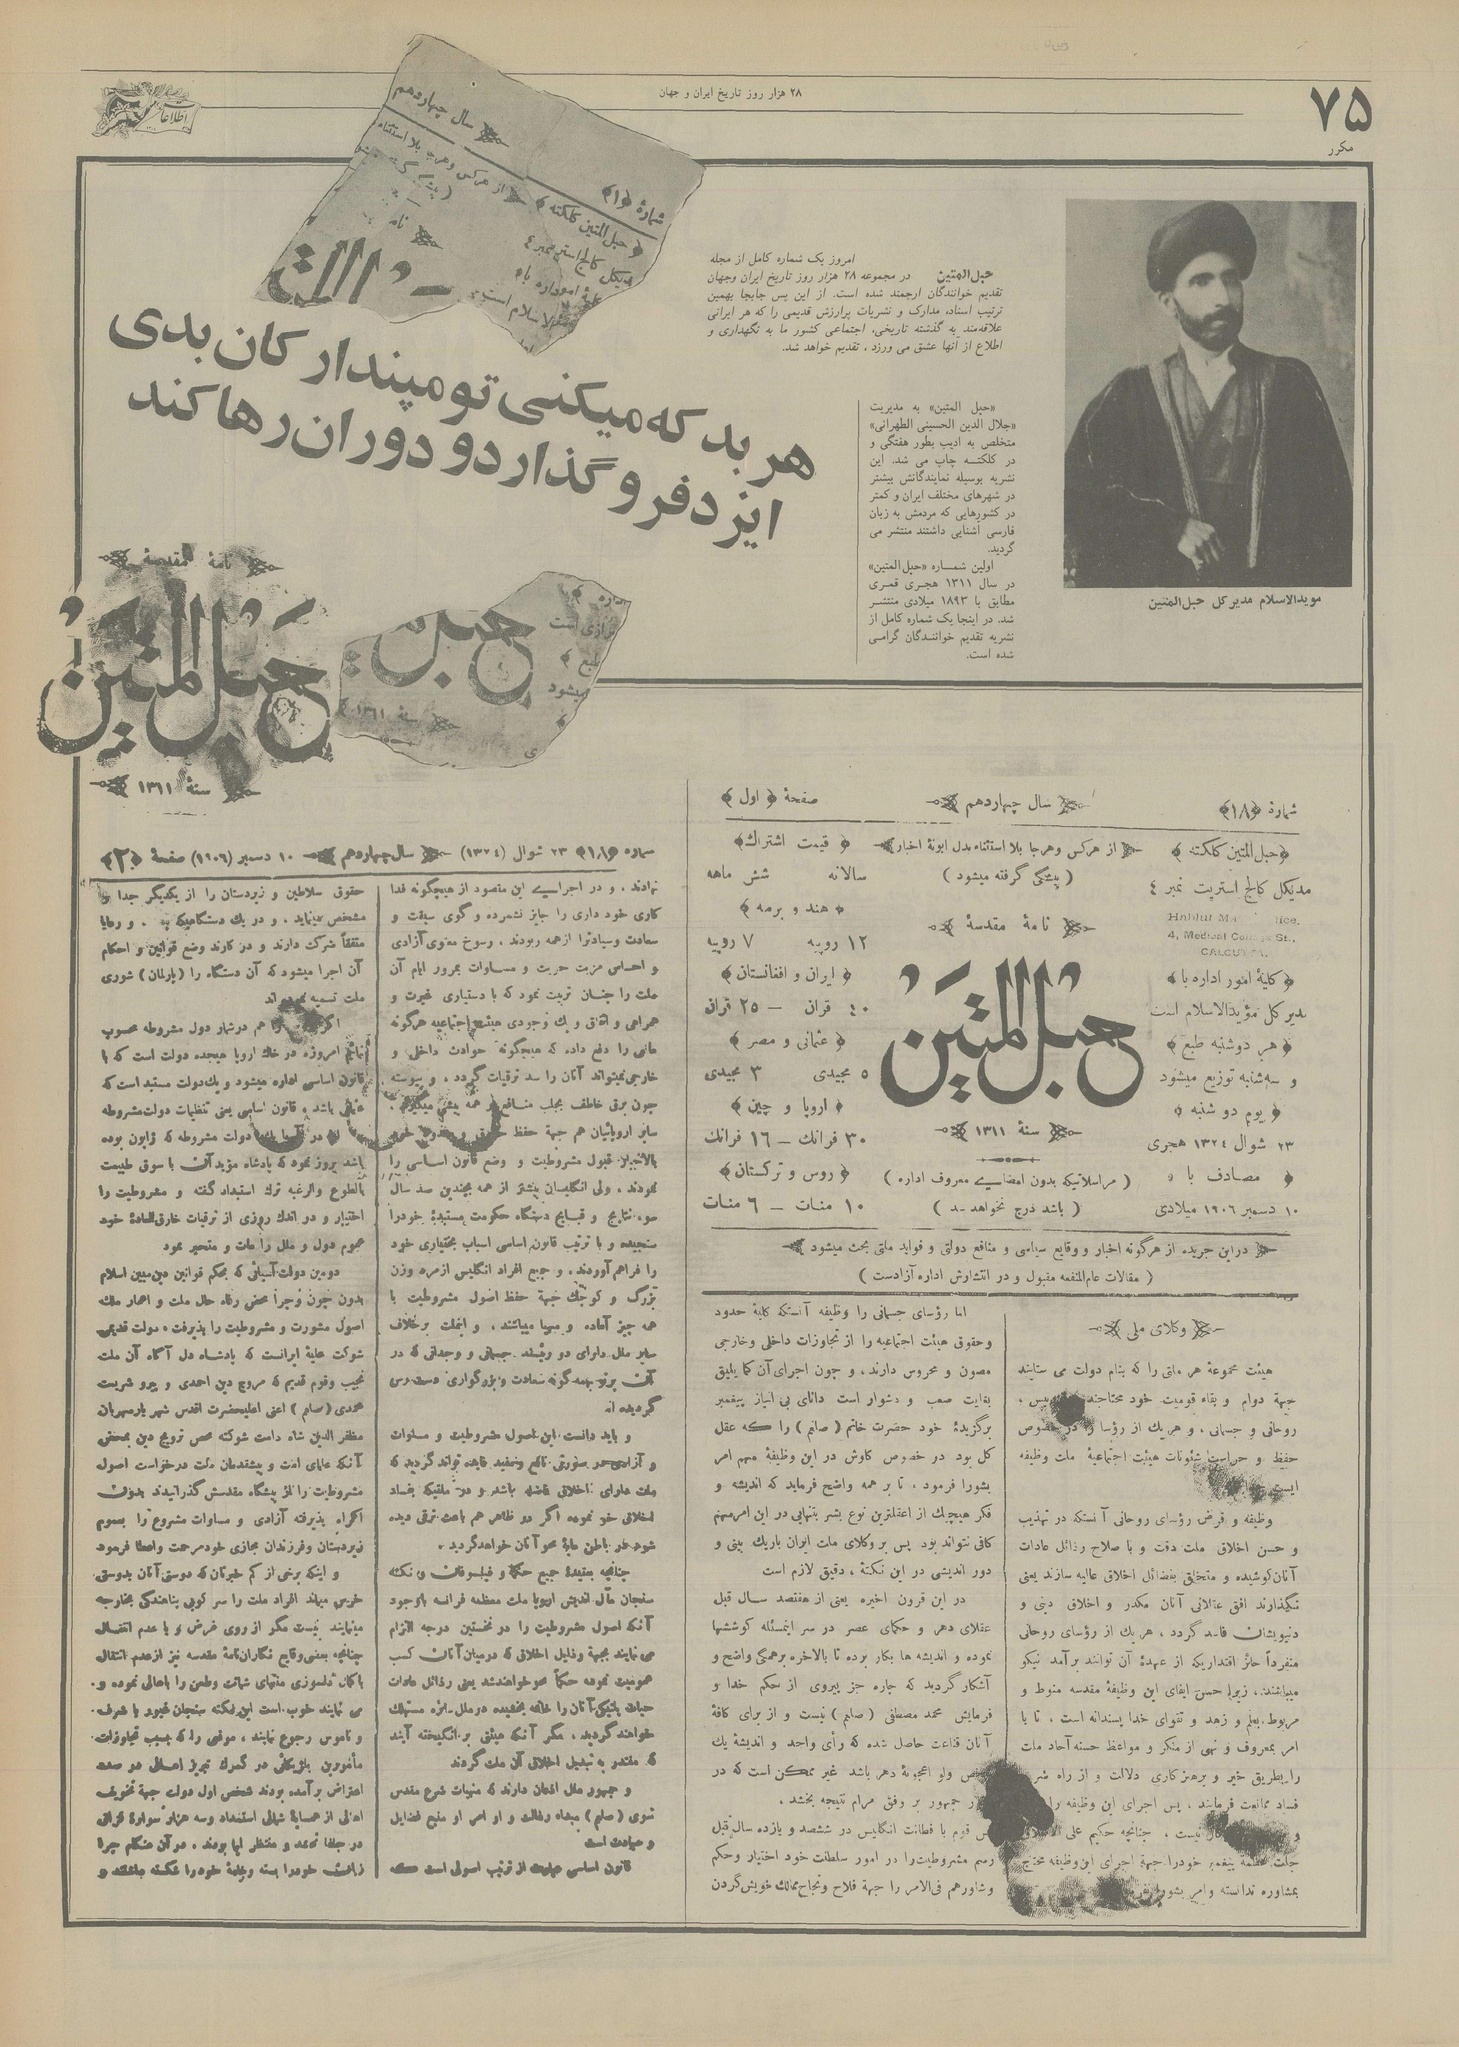 ۷۵
مکرر
۲۸ هزار روز تاریخ ایران و جهان
اطلاعات
سال چهاردهم
شمارهٔ ﴿۱﴾
از هرکس وهرجا بلا استثناء
﴿ حبل المتین کلکته ﴾
امروز یک شماره کامل از مجله
حبل‌المتین در مجموعه ۲۸ هزار روز تاریخ ایران وجهان
تقدیم خوانندگان ارجمند شده است. از این پس جابجا بهمین
ترتیب اسناد، مدارک و نشریات پرارزش قدیمی را که هر ایرانی
علاقه‌مند به گذشته تاریخی، اجتماعی کشور ما به نگهداری و
اطلاع از آنها عشق می ورزد ، تقدیم خواهد شد.
هر بد که میکنی تو مپندار کان بدی
ایزد فرو گذارد و دوران رها کند
«حبل المتین» به مدیریت
«جلال الدین الحسینی الطهرانی»
متخلص به ادیب بطور هفتگی و
در کلکتــه چاپ می شد. این
نشریه بوسیله نمایندگانش بیشتر
در شهرهای مختلف ایران و کمتر
در کشورهایی که مردمش به زبان
فارسی آشنایی داشتند منتشر می
گردید.
اولین شمــاره «حبل‌المتین»
در سال ۱۳۱۱ هجـری قمـری
مطابق با ۱۸۹۳ میلادی منتشـر
شد. در اینجا یک شماره کامل از
نشریه تقدیم خواننــدگان گرامـی
شده است.
مویدالاسلام مدیر کل حبل‌المتین
نامهٔ مقدسهٔ
حبل المتین
سنهٔ ۱۳۱۱
شمارهٔ ﴿۱۸﴾
سال چهاردهم
صفحهٔ ﴿ اول ﴾
﴿حبل المتین کلکته ﴾
مدیکل کالج استریت نمبر ٤
4, Medical College St.,
CALCUTTA.
﴿کلیهٔ امور اداره با﴾
مدیر کل مؤیدالاسلام است
﴿هر دوشنبه طبع﴾
و سه‌شنبه توزیع میشود
﴿ یوم دو شنبه ﴾
۲۳ شوال ۱۳۲٤ هجری
﴿ مصادف با ﴾
۱۰ دسمبر ۱۹۰٦ میلادی
از هرکس وهرجا بلا استثناء بدل ابونهٔ اخبار
( پیشگی گرفته میشود )
نامهٔ مقدسهٔ
حبل المتین
سنهٔ ۱۳۱۱
( مراسلاتیکه بدون امضایے معروف اداره )
( باشد درج نخواهد شد )
﴿ قیمت اشتراک﴾
سالانه شش ماهه
﴿ هند و برمه ﴾
۱۲ روپیه ۷ روپیه
﴿ ایران و افغانستان ﴾
٤۰ قران — ۲۵ قران
﴿ عثمانی و مصر ﴾
۵ مجیدی ۳ مجیدی
﴿ اروپا و چین ﴾
۳۰ فرانک — ۱٦ فرانک
﴿ روس و ترکستان ﴾
۱۰ منات — ٦ منات
دراین جریده از هرگونه اخبار و وقایع سیاسی و منافع دولتی و فواید ملتی بحث میشود
( مقالات عام‌المنفعه مقبول و در انتشارش اداره آزادست )
وکلای ملی
هیئت مجموعهٔ هر ملتی را که بنام دولت می ستایند
جهة دوام و بقاء قومیت خود محتاجند
روحانی و جسمانی ، و هریك از رؤسا را در خصوص
حفظ و حراست شئونات هیئت اجتماعیهٔ ملت وظیفه
ایست
وظیفه و فرض رؤسای روحانی آنستکه در تهذیب
و حسن اخلاق ملت دقت و با صلاح رذائل عادات
آنان کوشیده و متخلق بفضائل اخلاق عالیه سازند یعنی
نگذارند افق عقلانی آنان مکدر و اخلاق دینی و
دنیویشان فاسد گردد ، هریك از رؤسای روحانی
منفرداً حائز اقتداریکه از عهدهٔ آن توانند برآمد نیکو
میباشند ، زیرا حسن ایفای این وظیفهٔ مقدسه منوط و
مربوط بعلم و زهد و تقوای خدا پسندانه است ، تا با
امر بمعروف و نهی از منکر و مواعظ حسنه آحاد ملت
را بطریق خیر و پرهیزکاری دلالت و از راه شر
فساد ممانعت فرمایند ، پس اجرای این وظیفه را
نیست ، چنانچه حکیم علی
جلت عظمته پیغمبر خودرا جهة اجرای این وظیفه محتاج
بمشاوره ندانسته وامر بشور
اما رؤسای جسمانی را وظیفه آنستکه کلیهٔ حدود
وحقوق هیئت اجتماعیه را از تجاوزات داخلی وخارجی
مصون و محروس دارند ، و چون اجرای آن کما یلیق
بغایت صعب و دشوار است دانای بی انباز پیغمبر
برگزیدهٔ خود حضرت خاتم ( صلعم ) را کــه عقل
کل بود در خصوص کاوش در این وظیفهٔ مهم امر
بشورا فرمود ، تا بر همه واضح فرماید که اندیشه و
فکر هیچیك از اعقلترین نوع بشر بتنهایی در این امرمهم
کافی نتواند بود پس بر وکلای ملت ایران باریك بینی و
دور اندیشی در این نکتهٔ ، دقیق لازم است
در این قرون اخیره یعنی از هفتصد سال قبل
عقلای دهر و حکمای عصر در سر اینمسئله کوششها
نموده و اندیشه ها بکار برده تا بالاخره برهمگی واضح و
آشکار گردید که چاره جز پیروی از حکم خدا و
فرمایش محمد مصطفی ( صلعم ) نیست و از برای کافهٔ
آنان قناعت حاصل شده که رأی واحد و اندیشهٔ یك
ولو اعجوبهٔ دهر باشد غیر ممکن است که در
جمهور بر وفق مرام نتیجه بخشد .
قوم با فطانت انگلیس در ششصد و یازده سال قبل
رسم مشروطیت را در امور سلطنت خود اختیار وحکم
وشاورهم فی‌الامر را جهة فلاح ونجاح ممالك خویش گردن
شماره ﴿۱۸﴾ ۲۳ شوال (۱۳۲٤) سال چهاردهم ۱۰ دسمبر (۱۹۰٦) صفحهٔ ﴿۲﴾
نهادند ، و در اجراییے این مقصود از هیچگونه فدا
کاری خود داری را جایز نشمرده و گوی سبقت و
سعادت وسیادترا ازهمه ربودند ، رسوخ معنوی آزادی
و احساس مزیت حریت و مساوات بمرور ایام آن
ملت را چنان تربیت نمود که با دستیاری غیرت و
همراهی و اتفاق و یك وجودی هیئت اجتماعیه هرگونه
مانعی را دفع داده که هیچگونه حوادث داخلی و
خارجی نمیتواند آنان را سد ترقیات گردد ، و پیوسته
چون برق خاطف بجلب منافع بر همه پیشی میگیرند .
سایر اروپائیان هم جهة حفظ حقوق و
بالاخره قبول مشروطیت و وضع قانون اساسی را
نمودند ، ولی انگلیسان پیشتر از همه بچندین صد سال
سوء نتایج و قبایح دستگاه حکومت مستبدهٔ خودرا
سنجیده و با ترتیب قانون اساسی اسباب بختیاری خود
را فراهم آوردند ، و جمیع افراد انگلیس ازمرد وزن
بزرگ و کوچك جهة حفظ اصول مشروطیت با
همه چیز آماده و مهیا میباشند ، و اینملت برخلاف
سایر ملل دارای دو رئیسند جسمانی و وجدانی که در
همه گونه سعادت و بزرگواری دست رس
گردیده اند
و باید دانست این اصول مشروطیت و مساوات
و آزادی در صورتی نافع و مفید فایده تواند گردید که
ملت دارای اخلاق فاضله باشد و در ملتیکه بفساد
اخلاق خو نموده اگر در ظاهر هم باعث ترقی دیده
شود در باطن مایهٔ محو آنان خواهد گردید .
چنانچه بعقیدهٔ جمیع حکما و فیلسوفان و نکته
سنجان مآل اندیش اروپا ملت معظمه فرانسه باوجود
آنکه اصول مشروطیت را در نخستین درجه التزام
می نمایند بجهة رذایل اخلاق که درمیان آنان کسب
عمومیت نموده حکماً محو خواهند شد یعنی رذائل عادات
خواهند گردید ، مگر آنکه هیئتی بر انگیخته آیند
که مقتدر به تبدیل اخلاق آن ملت گردند
و جمهور ملل اذعان دارند که منهیات شرع مقدس
نبوی ( صلعم ) مبداء رذالت و اوامر او منبع فضایل
و سیادت است
قانون اساسی عبارت از ترتیب اصولی است که
حقوق سلاطین و زیردستان را از یکدیگر جدا و
مشخص مینماید ، و در یك دستگاهیکه و رعایا
متفقاً شرکت دارند و در کارند وضع قوانین و احکام
آن اجرا میشود که آن دستگاه را (پارلمان) شوری
ملت تسمیه نموده اند
هم درشمار دول مشروطه محسوب
نمائیم امروزه در خاك اروپا هیجده دولت است که با
قانون اساسی اداره میشود و یك دولت مستبد است که
عثمانی باشد ، قانون اساسی یعنی تنظیمات دولت مشروطه
دولت مشروطه که ژاپون بوده
باشد بروز نمود که پادشاه مؤید آن با سوق طبیعت
بالطوع والرغبه ترك استبداد گفته و مشروطیت را
اختیار و در اندك روزی از ترقیات خارق‌العادهٔ خود
عموم دول و ملل را مات و متحیر نمود
دومین دولت آسیائی که بحکم قوانین دین مبین اسلام
بدون چون وچرا محض رفاه حال ملت و اعمار ملك
اصول مشورت و مشروطیت را پذیرفت ، دولت قدیمی
شوکت علیهٔ ایرانست که پادشاه دل آگاه آن ملت
نجیب وقوم قدیم که مروج دین احمدی و پیرو شریعت
محمدی ( صلعم ) اعنی اعلیحضرت اقدس شهریار مهربان
مظفر الدین شاه دامت شوکته محض ترویج دین بمحض
آنکه علمای امت و پیشقدمان ملت درخواست اصول
مشروطیت را از پیشگاه مقدسش گذرانیدند بدون
اکراه پذیرفته آزادی و مساوات مشروع را بعموم
زیردستان وفرزندان مجازی خود مرحمت واعطا فرمود
و اینکه برخی از کم خبرتان که دوستی آنان بدوستی
خرس میماند افراد ملت را سر کوبی بپناهندگی بخارجه
مینمایند نیست مگر از روی غرض و یا عدم انتقال
چنانچه بعضی وقایع نگاران نامهٔ مقدسه نیز از عدم انتقال
باکمال دلسوزی منتهای شماتت وطعن را باهالی نموده و
می نمایند خوب است این نکته سنجان غیور با شرف
و ناموس رجوع نمایند ، موقعی راکه بسبب تجاوزات
مأمورین بلژیکائی در گمرك تبریز اهالی در صدد
اعتراض برآمده بودند شخص اول دولت جهة تخویف
اهالی از همسایهٔ شمالی استمداد وسه هزار سوارهٔ قزاق
در جلفا آمده و منتظر ایما بودند ، درآن هنگام چرا
زبان خودرا بسته و خامهٔ خودرا شکسته داشتند و